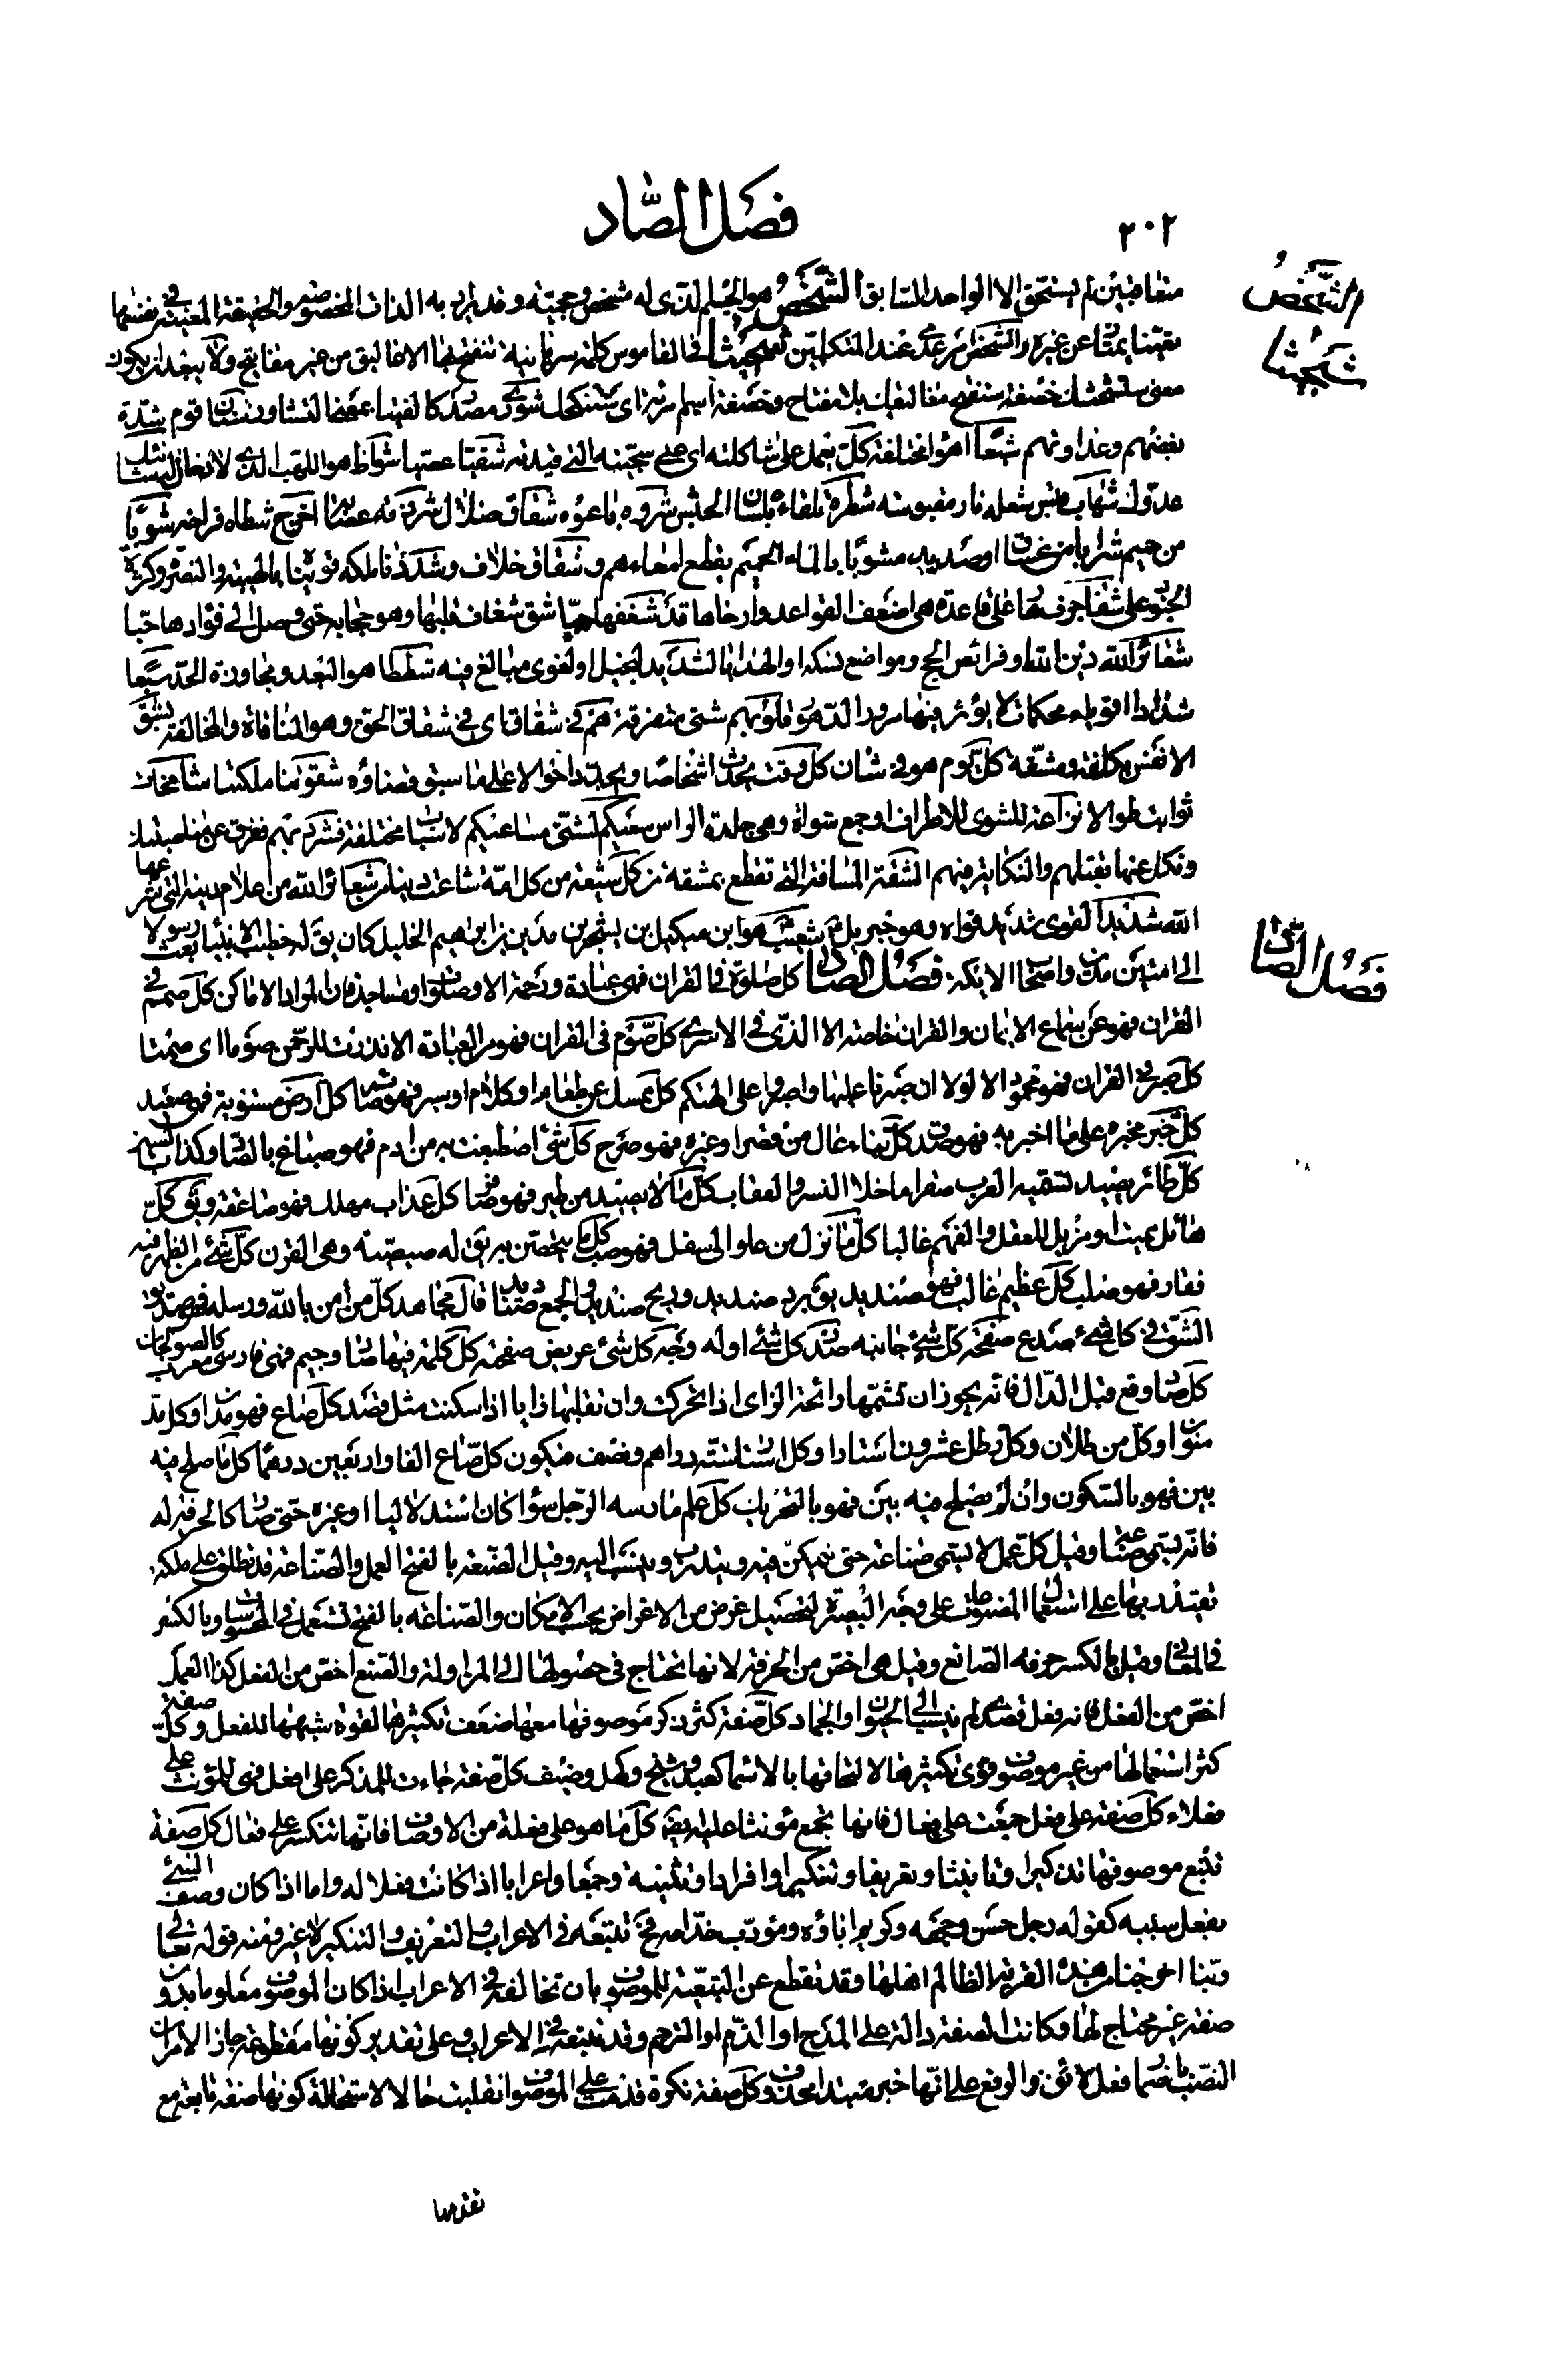 ٢٠٢
فصل الصاد
الشخص
شخيثا
متعاقبين لم يستحق الا الواحد السابق الشخص هو الجسم الذى له مشخص وحجمية وقد يراد به الذات المخصوصة والحقيقة المعينة فى نفسها
تعينا يمتاز عن غيره والشخص امر عدمى عند المتكلمين شخيثا فى القاموس كلمة سريانية تنفتح بها الاغاليق من غير مفاتيح ولا يبعد ان يكون
بعضهم وعداوتهم شيعا اهواء مختلفة كل يعمل على شاكلته اى على سجيته التى شقيا عصيا شواظ هو اللهب الذى لا دخان له
من حميم شرابا من غساق او صديد مشوبا بالماء الحميم يقطع امعاءهم وشقاق خلاف وشددنا ملكه قويناه بالهيبة والنصرة وكثرة
الجنود على شفا جرف هار على قاعدة هى اضعف القواعد وارخاها قد شغفها حبا شق شغاف قلبها وهو حجابه حتى وصل الى فؤادها حبا
شعائر الله دين الله او فرائض الحج ومواضع نسكه او الهدايا لشديد لبخيل او لقوى مبالغ فيه شططا هو البعد ومجاوزة الحد سبعا
شدادا اقوياء محكمات لا يؤثر فيها مرور الدهور قلوبهم شتى متفرقة هم فى شقاق اى فى شقاق الحق وهو المناواة والمخالفة بشق
الانفس بكلفة ومشقة كل يوم هو فى شان كل وقت يحدث اشخاصا ويجدد احوالا على ما سبق قضاؤه شقوتنا ملكتنا شامخات
ثوابت طوالا نزاعة للشوى للاطراف او جمع شواة وهى جلدة الراس سعيكم لشتى مساعيكم لاسباب مختلفة فشرد بهم ففرق عن مناصبتك
ونكل عنها بقتلهم والنكاية فيهم الشقة المسافة التى تقطع بمشقة من كل شيعة من كل امة شاعت دينا من شعائر الله من اعلام دينه التى شرعها
الله شديد القوى شديد قواه وهو جبريل شعيب هو ابن ميكيل بن يشجر بن مدين بن ابراهيم الخليل كان يق له خطيب الانبياء بعث رسولا
الى امتين مدين واصحاب الايكة فصل الصاد كل صلوة فى القران فهى عبادة ورحمة الا وصلوات ومساجد فان المراد الاماكن كل صمم فى
القران فهو عن سماع الايمان والقران خاصة الا الذى فى الاسرى كل صوم فى القران فهو من العبادة الا نذرت للرحمن صوما اى صمتا
كل صبر فى القران فهو محمود الا لولا ان صبرنا عليها واصبروا على الهتكم كل ممسك عن طعام او كلام او سير فهو صائم كل ارض مستوية فهى صعيد
كل خبر مخبره على ما اخبر به فهو صدق كل بناء عال من قصر او غيره فهو صرح كل شئ اصطبغت به من ادم فهو صباغ بالصاد وكذا بالسين
كل طائر يصيد تسميه العرب صقرا ما خلا النسر والعقاب كل ما لا يصيد من طير فهو كل عذاب مهلك فهو صاعقة ويق كل
هائل مميت او مزيل للعقل والفهم غالبا كل ما نزل من علو الى سفل فهو صبب كل ما يتحصن به يق له صيصية وهى القرن كل شئ من الظهر فيه
فقار فهو صلب كل عظيم غالب فهو صنديد يق برد صنديد وريح صنديد والجمع صناديد قال مجاهد كل من امن بالله ورسله فهو صديق
الشق فى كل شئ صدع صفحة كل شئ جانبه صدر كل شئ اوله وجه كل شئ عريض صفحته كل كلمة فيها صاد وجيم فهى فارسى معرب كالصولجان
كل صاد وقع قبل الدال فانه يجوز ان تشمها رائحة الزاى اذا تحركت وان تقلبها زايا اذا سكنت مثل فصد كل صاع فهو امداد وكل مد
منوان وكل من رطلان وكل رطل عشرون استارا وكل استار ستة دراهم ونصف فيكون كل صاع الفا واربعين درهما كل ما صلح فيه
بين فهو بالسكون وان لم يصلح فيه بين فهو بالتحريك كل علم مارسه الرجل سواء كان استدلاليا او غيره حتى صار كالحرفة له
فانه يسمى صناعة وقيل كل عمل لا يسمى صناعة حتى يتمكن فيه ويتدرب وينسب اليه وقيل الصنعة بالفتح العمل والصناعة قد تطلق على ملكة
يقتدر بها على استعمال المصنوعات على وجه البصيرة لتحصيل غرض من الاغراض بحسب الامكان والصناعة بالفتح تستعمل فى المحسوسات وبالكسر
فى المعانى وقيل بالكسر حرفة الصانع وقيل هى اخص من الحرفة لانها تحتاج فى حصولها الى المزاولة والصنع اخص من الفعل كذا العمل
اخص من الفعل فانه فعل قصدى لم ينسب الى الحيوان والجماد كل صفة كثر ذكر موصوفها معها ضعف تكسيرها لقوة شبهها للفعل وكل صفة
كثر استعمالها من غير موصوف قوى تكسيرها لالتحاقها بالاسماء كعبد وشيخ وكهل وضيف كل صفة جاءت للمذكر على افعل فهى للمؤنث على
فعلاء كل صفة على فعل جمعت على فعال فانها تجمع مؤنثا عليه ايضا كل ما هو على فعلة من الاوصاف فانها تنكسر على فعال كل صفة
تتبع موصوفها تذكيرا وتانيثا وتعريفا وتنكيرا وافرادا وتثنية وجمعا واعرابا اذا كانت فعلا له واما اذا كان وصف الشئ
بفعل سببه كقوله رجل حسن وجهه وكريم اباؤه ومؤدب خدامه فح تتبعه فى الاعراب والتعريف والتنكير لا غير ومنه قوله تعالى
ربنا اخرجنا من هذه القرية الظالم اهلها وقد تقطع عن التبعية للموصوف بان تخالفه فى الاعراب اذا كان الموصوف معلوما بدون
صفة غير محتاج لها وكانت الصفة دالة على المدح او الذم او الترحم وقد تتبعه فى الاعراب وعلى تقدير كونها مقطوعة جاز الامران
النصب باضمار فعل لائق والرفع على انها خبر مبتدا محذوف وكل صفة نكرة قدمت على الموصوف انقلبت حالا لاستحالة كونها صفة تابعة مع
فصل الصاد
تقدمها